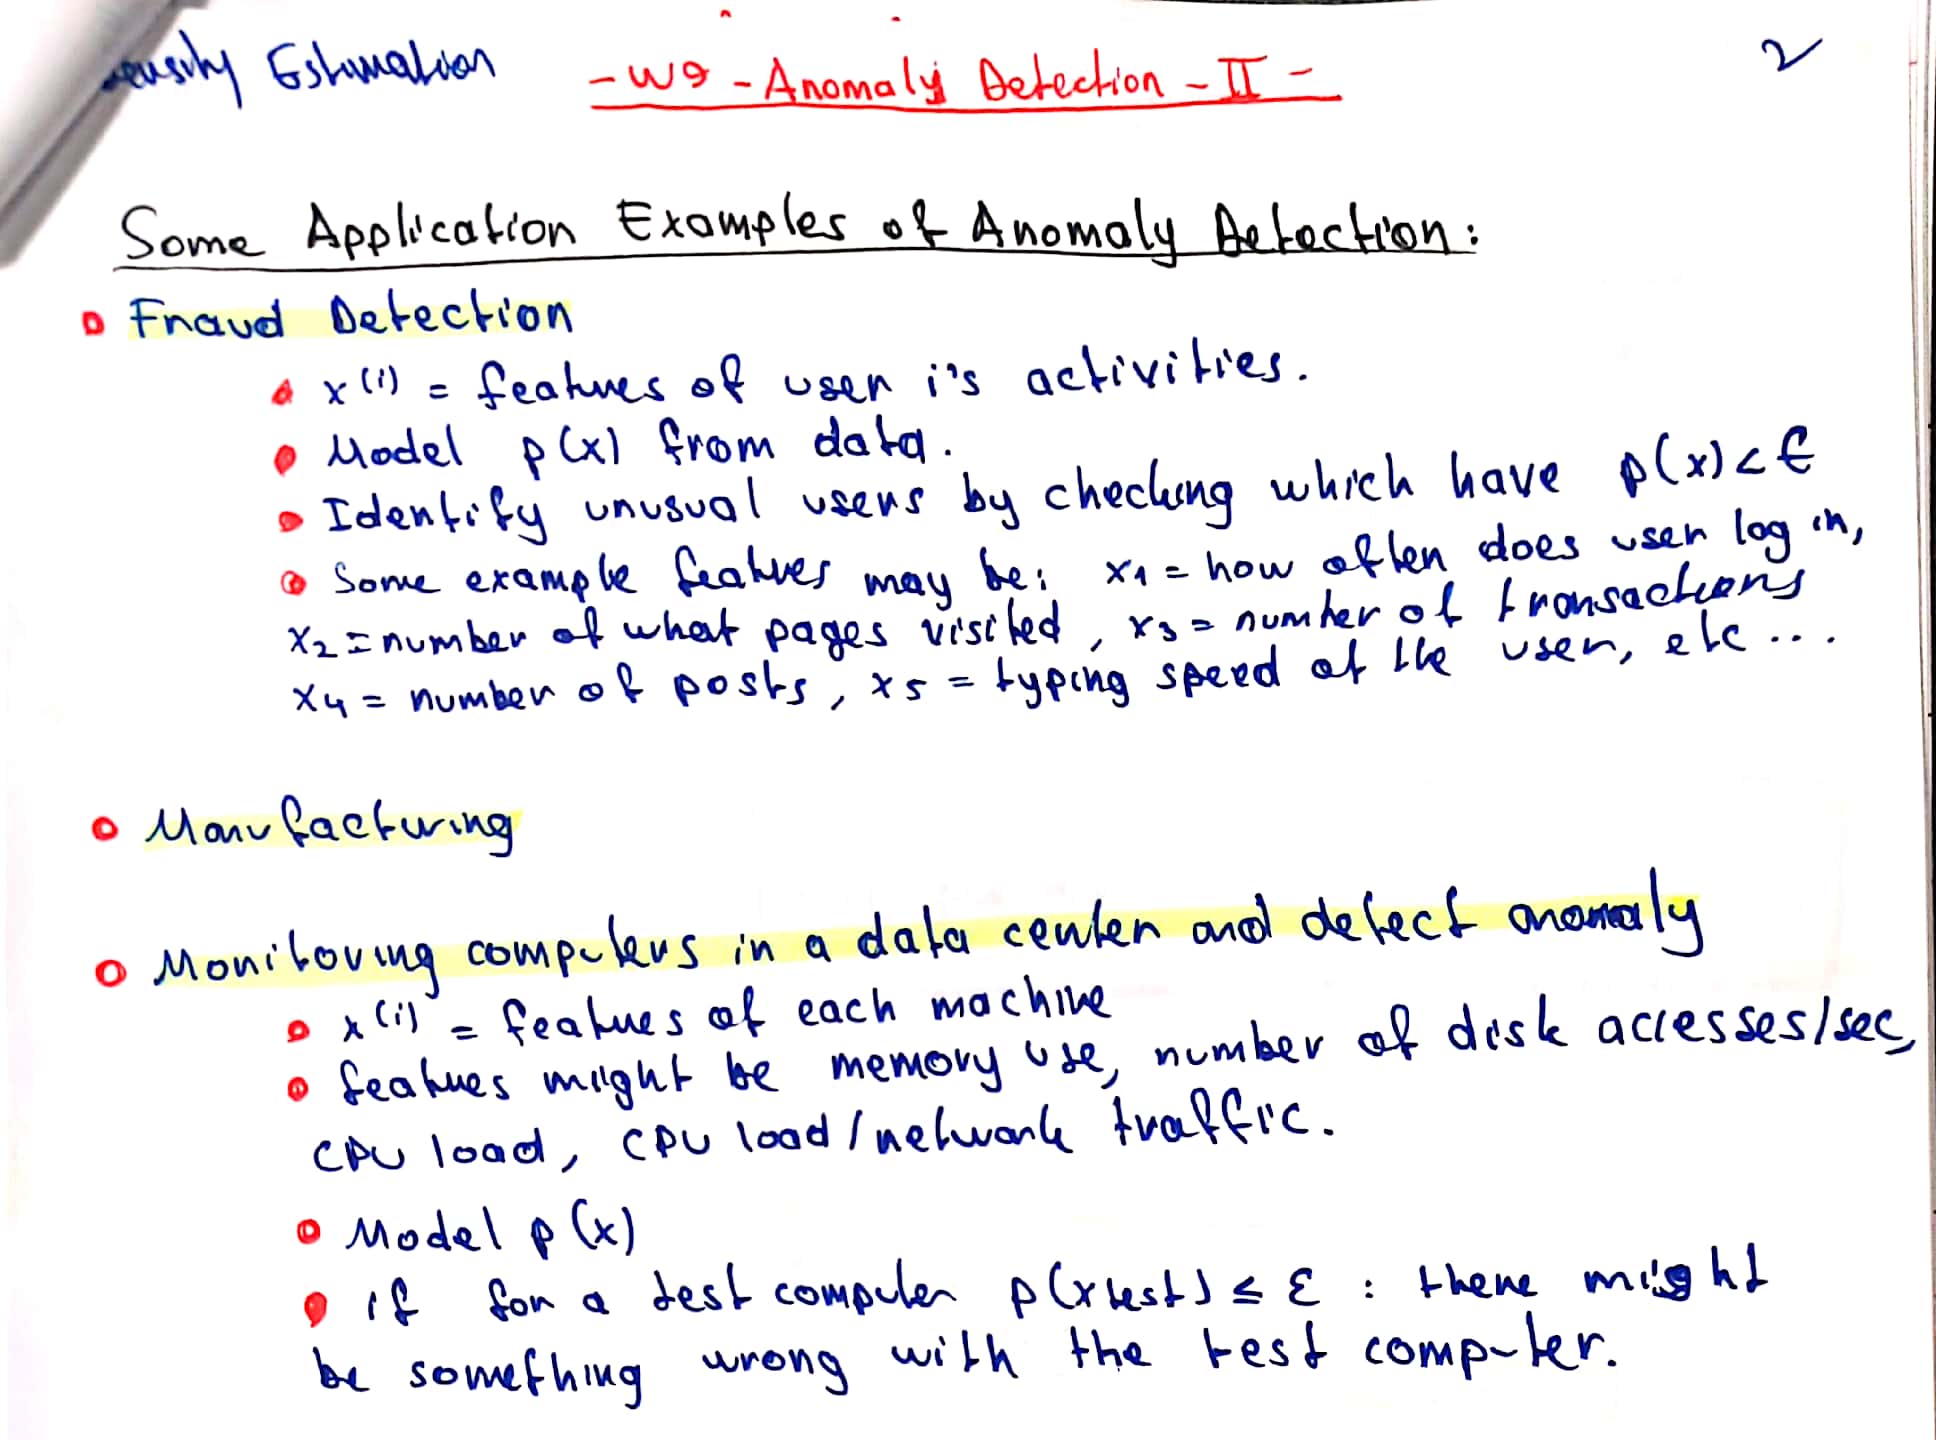 Estimation - W9 - Anomaly Detection - II -
2
Some Application Examples of Anomaly Detection:
Fraud Detection
x(i) = features of user i's activities.
Model p(x) from data.
Identify unusual users by checking which have p(x) < ϵ
Some example features may be: x1 = how often does user log in,
x2 = number of what pages visited, x3 = number of transactions
x4 = number of posts, x5 = typing speed of the user, etc...
Manufacturing
Monitoring computers in a data center and detect anomaly
x(i) = features of each machine
features might be memory use, number of disk accesses/sec,
CPU load, CPU load/network traffic.
Model p(x)
if for a test computer p(xtest) ≤ ε : there might
be something wrong with the test computer.